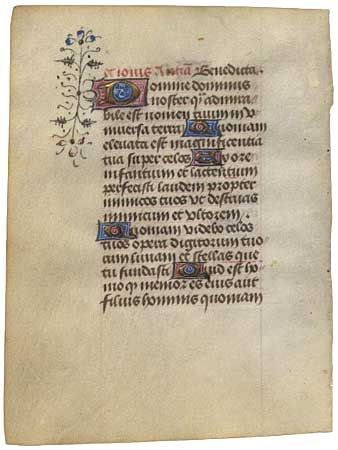 et iovis Antiã Benedicta.
Domine dominus
noster q̃ admira
bile est nomen tuum in v
niversa terra Quoniam
elevata est magnificentia
tua super celos Ex ore
infantium et lactentium
perfecisti laudem propter
inimicos tuos vt destruas
inimicum et vltorem
Quoniam videbo celos
tuos opera digitorum tuo
rum lunam et stellas que
tu fundasti Quid est ho
mo q̃ memor es eius aut
filius hominis quoniam